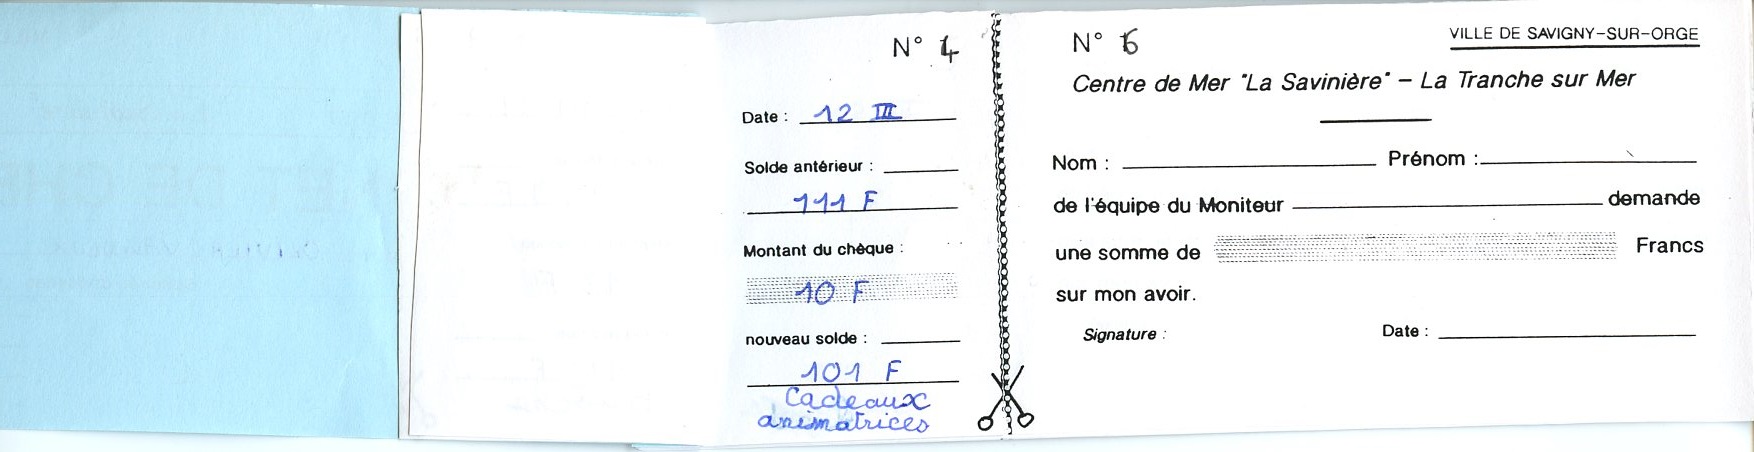 N° 4
Date : 12 III
Solde antérieur :
111 F
Montant du chèque :
10 F
nouveau solde :
101 F
Cadeaux
animatrices
N° 6
VILLE DE SAVIGNY-SUR-ORGE
Centre de Mer "La Savinière" - La Tranche sur Mer
Nom : Prénom :
de l'équipe du Moniteur demande
une somme de Francs
sur mon avoir.
Signature : Date :